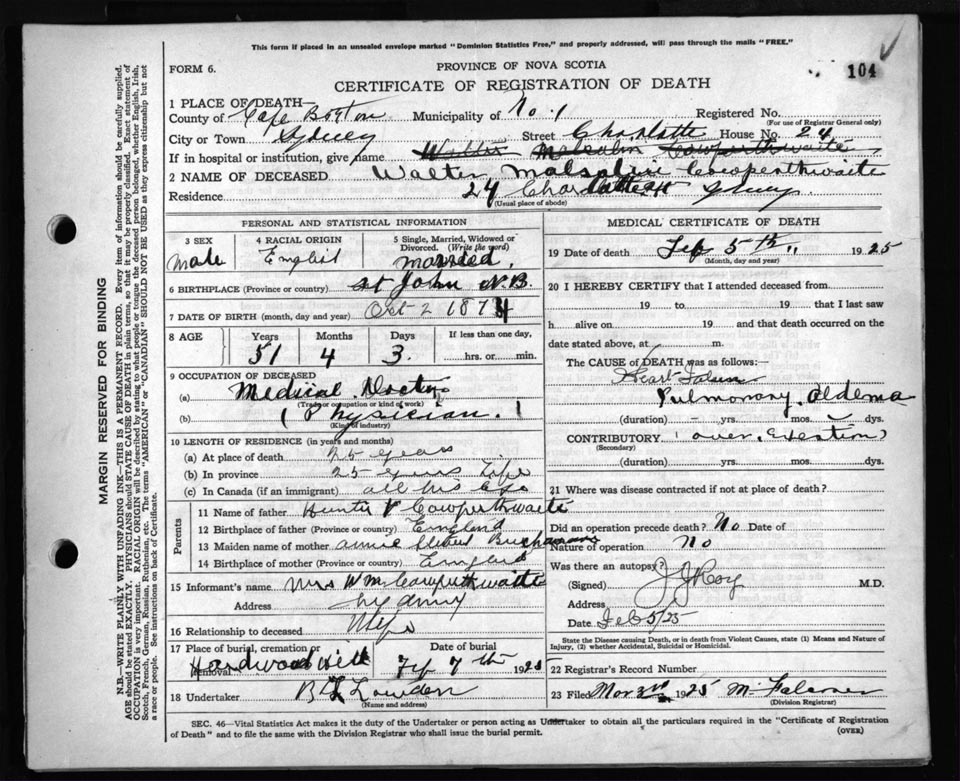 This form if placed in an unsealed envelope marked "Dominion Statistics Free," and properly addressed, will pass through the mails "FREE."
FORM 6.
PROVINCE OF NOVA SCOTIA
104
CERTIFICATE OF REGISTRATION OF DEATH
1 PLACE OF DEATH—
County of Cape Breton Municipality of No. 1 Registered No.
(For use of Registrar General only)
City or Town Sydney Street Charlotte House No. 24
If in hospital or institution, give name Walter Malcolm Cowperthwaite
2 NAME OF DECEASED Walter Malcolm Cowperthwaite
Residence 24 Charlotte St Sydney
(Usual place of abode)
PERSONAL AND STATISTICAL INFORMATION
3 SEX
Male
4 RACIAL ORIGIN
English
5 Single, Married, Widowed or Divorced. (Write the word)
Married.
6 BIRTHPLACE (Province or country) St John N.B.
7 DATE OF BIRTH (month, day and year) Oct 2 1874
8 AGE Years Months Days If less than one day,
51 4 3. hrs. or min.
9 OCCUPATION OF DECEASED
(a) Medical Doctor
(Trade or occupation or kind of work)
(b) (Physician.)
(Kind of industry)
10 LENGTH OF RESIDENCE (in years and months)
(a) At place of death 25 years
(b) In province 25 years Life
(c) In Canada (if an immigrant) all his life
Parents
11 Name of father Hunter Cowperthwaite
12 Birthplace of father (Province or country) England
13 Maiden name of mother Annie Buchanan
14 Birthplace of mother (Province or country) England
15 Informant's name Mrs W M Cowperthwaite
Address Sydney
16 Relationship to deceased Wife
17 Place of burial, cremation or removal Hardwood Hill
Date of burial Feb 7th 1925
18 Undertaker Lowden
(Name and address)
MEDICAL CERTIFICATE OF DEATH
19 Date of death Feb 5th 1925
(Month, day and year)
20 I HEREBY CERTIFY that I attended deceased from
19 to 19 that I last saw
h alive on 19 and that death occurred on
date stated above, at m.
The CAUSE of DEATH was as follows:
Heart Failure
Pulmonary Oedema
(duration) yrs. mos. dys.
CONTRIBUTORY (over exertion)
(Secondary)
(duration) yrs. mos. dys.
21 Where was disease contracted if not at place of death?
Did an operation precede death? No Date of
Nature of operation No
Was there an autopsy?
(Signed) J J Roy M.D.
Address
Date Feb 5/25
State the Disease causing Death, or in death from Violent Causes, state (1) Means and Nature of
Injury, (2) whether Accidental, Suicidal or Homicidal.
22 Registrar's Record Number
23 Filed Mar 3rd 1925
(Division Registrar)
SEC. 46—Vital Statistics Act makes it the duty of the Undertaker or person acting as Undertaker to obtain all the particulars required in the "Certificate of Registration
of Death" and to file the same with the Division Registrar who shall issue the burial permit.
(OVER)
MARGIN RESERVED FOR BINDING
N.B.—WRITE PLAINLY WITH UNFADING INK—THIS IS A PERMANENT RECORD. Every item of information should be carefully supplied.
AGE should be stated EXACTLY. PHYSICIANS should STATE CAUSE OF DEATH in plain terms, so that it may be properly classified. Exact statement of
OCCUPATION is very important. RACIAL ORIGIN will be described by stating to what people or tongue the deceased person belonged, whether English, Irish,
Scotch, French, German, Russian, Ruthenian, etc. The terms "AMERICAN" or "CANADIAN" SHOULD NOT BE USED as they express citizenship but not
a race or people. See instructions on back of Certificate.